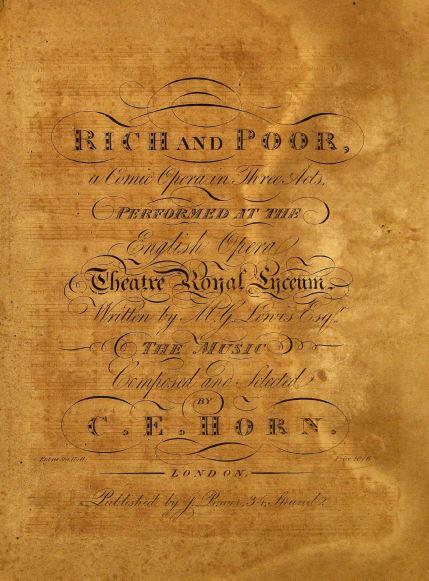 RICH AND POOR,
a Comic Opera in Three Acts,
PERFORMED AT THE
English Opera
Theatre Royal Lyceum.
Written by M.G. Lewis Esqr.
THE MUSIC
Composed and Selected
BY
C. E. HORN.
Price 10/6
LONDON,
Published by J. Power, 34, Strand.